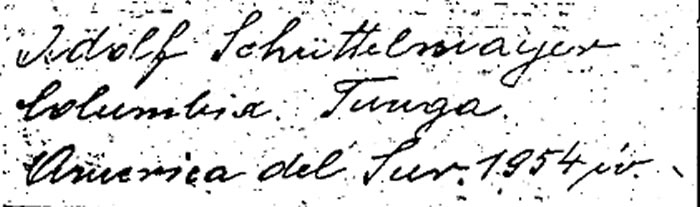 Adolf Schüttelmayer
Columbia. Tunga.
America del Sur. 1954 iv.